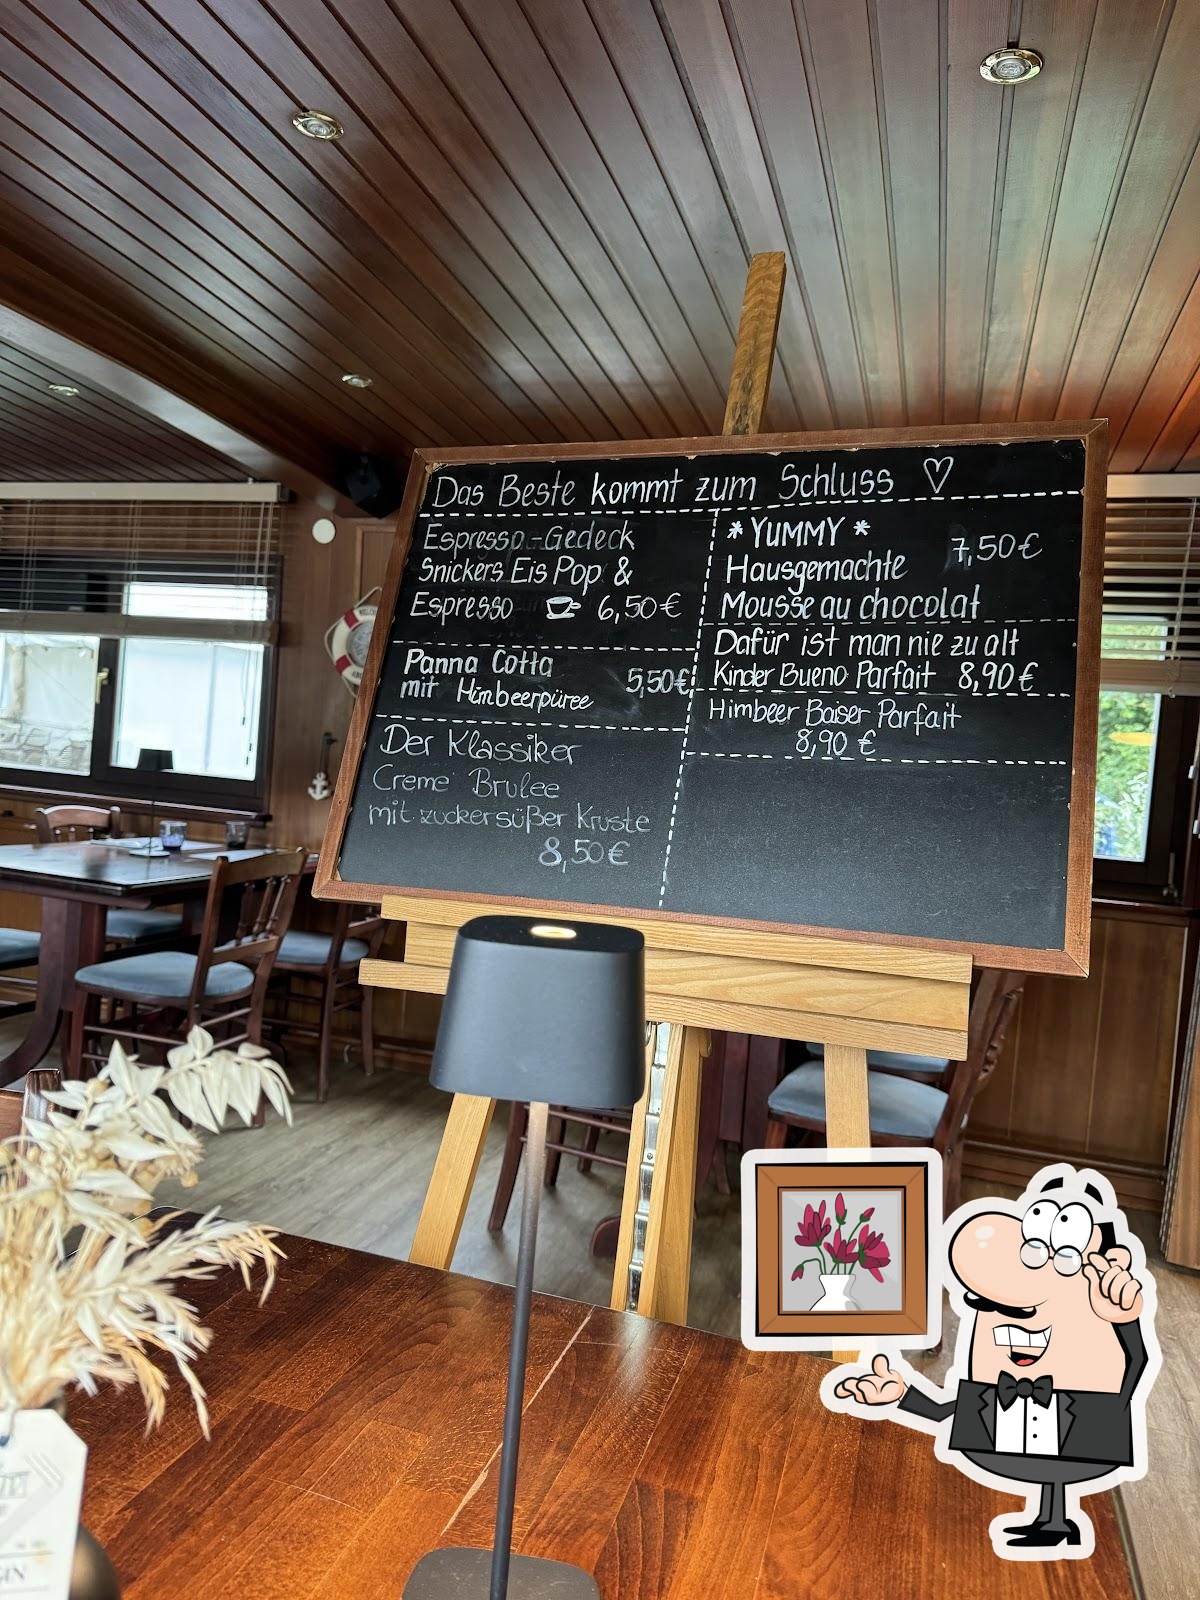 Das Beste kommt zum Schluss ♡
Espresso-Gedeck
Snickers Eis Pop &
Espresso 6,50€
Panna Cotta
mit Himbeerpüree 5,50€
Der Klassiker
Creme Brulee
mit zuckersüßer Kruste
8,50€
*YUMMY*
Hausgemachte 7,50€
Mousse au chocolat
Dafür ist man nie zu alt
Kinder Bueno Parfait 8,90€
Himbeer Baiser Parfait
8,90 €